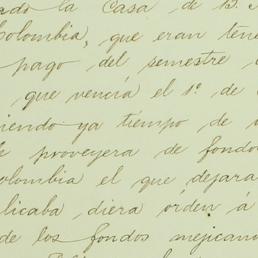 ado la Casa de B.
Colombia, que eran tene
pago del semestre
que vencía el 1º de
iendo ya tiempo de
proveyera de fondo
olombia el que dejara
licaba, diera órden á
de los fondos mejicano